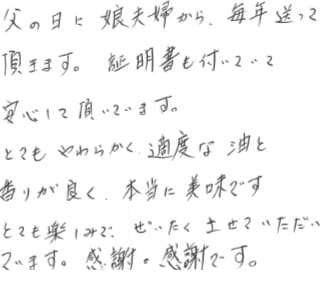 父の日に娘夫婦から、毎年送って
頂きます。証明書も付いていて
安心して頂いています。
とてもやわらかく適度な油と
香りが良く、本当に美味です
とても楽しみで、ぜいたくさせていただい
ています。感謝。感謝です。